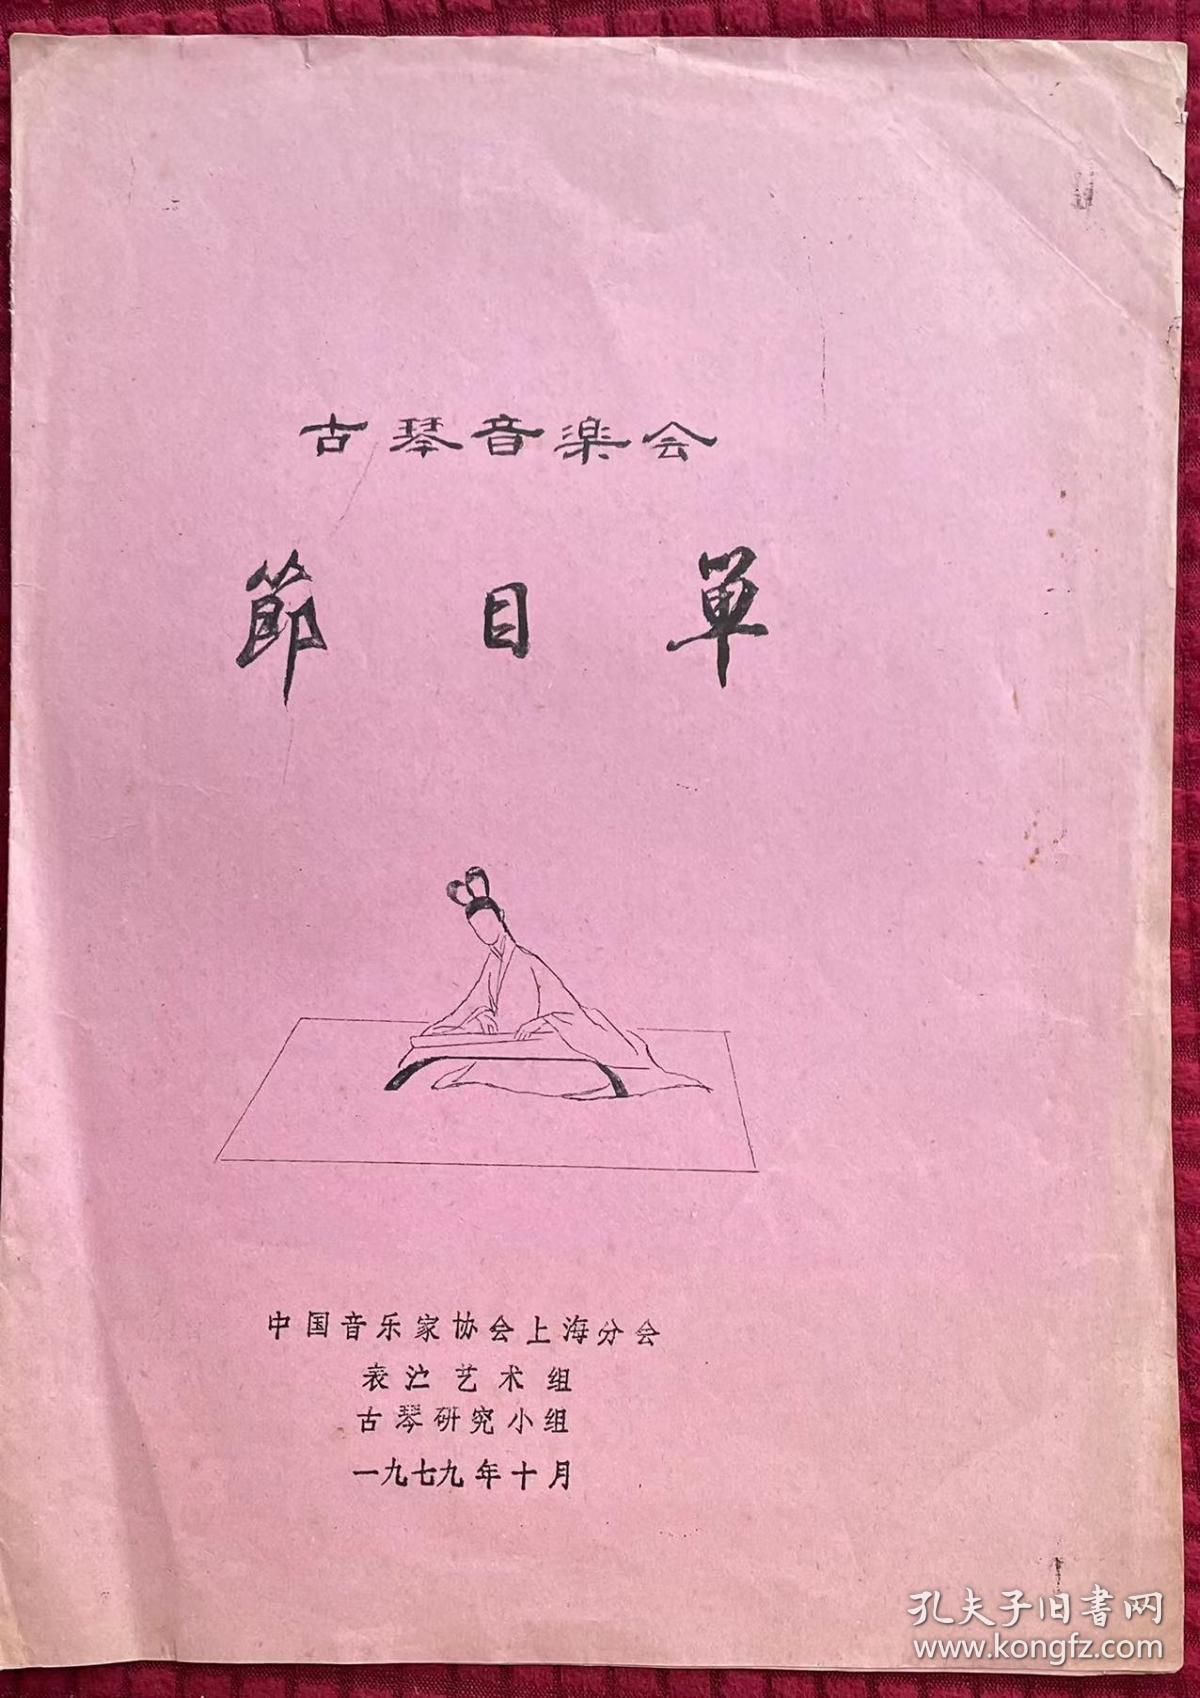 古琴音楽会
節目単
中国音乐家协会上海分会
表氵艺术组
古琴研究小组
一九七九年十月
孔夫子旧書网
www.kongfz.com